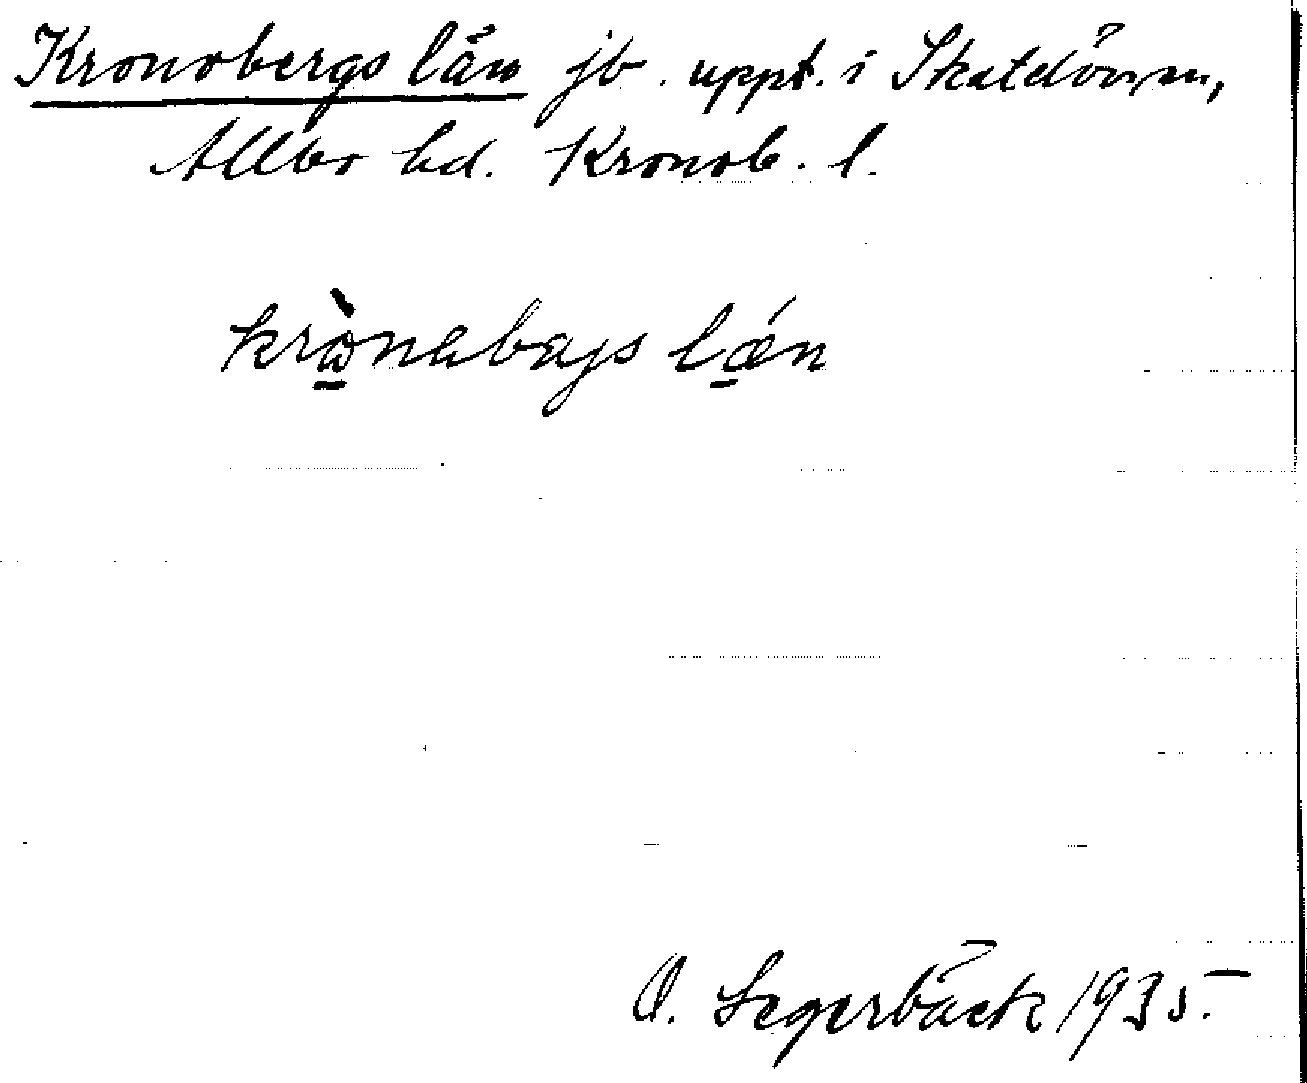 Kronobergs län jb. uppt. i Skatelövs sn,
Allbo hd. Kronob. l.
krònabajs lǽn
O. Segerbäck 1935.